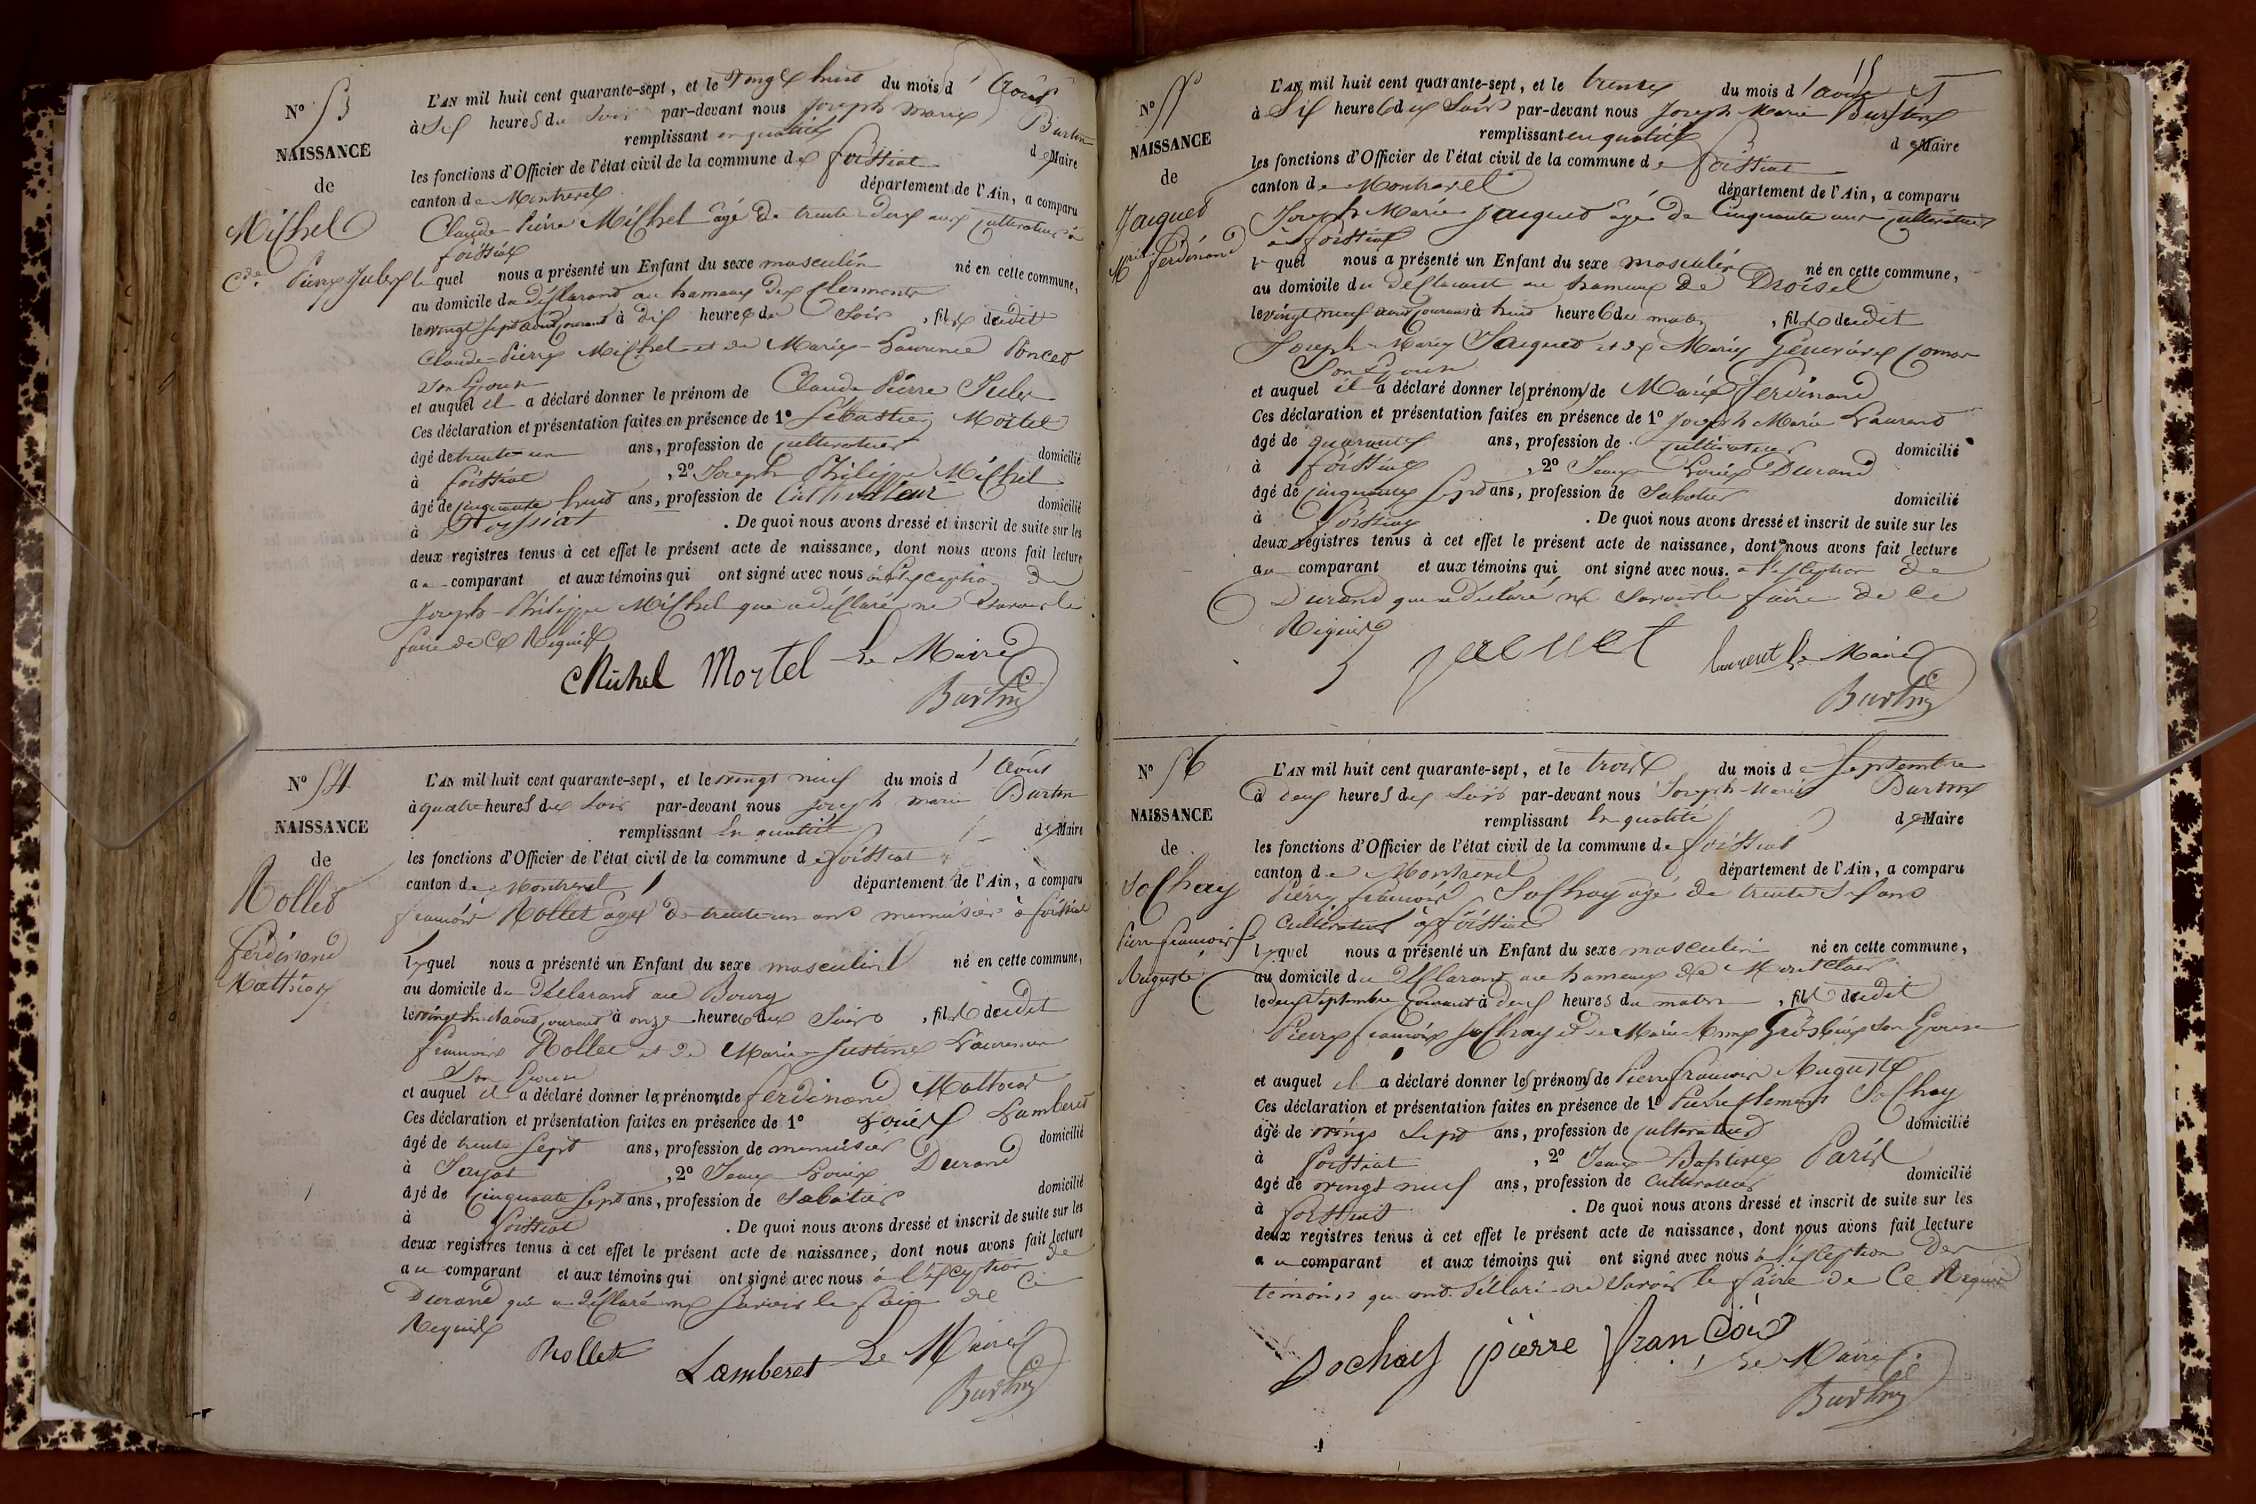 N° 53
NAISSANCE
de
Michel
Cde Pierre Jules
L'AN mil huit cent quarante-sept, et le vingt huit du mois d'Août
à six heures du soir par-devant nous Joseph Marie Burtin
remplissant en qualité de Maire
les fonctions d'Officier de l'état civil de la commune de foissiat
canton de Montrevel département de l'Ain, a comparu
Claude Pierre Michel âgé de trente deux ans cultivateur à
foissiat
lequel nous a présenté un Enfant du sexe masculin né en cette commune,
au domicile du déclarant au hameau des Clermonts
le vingt sept août courant à dix heures du soir, fils dudit
Claude-Pierre Michel et de Marie-Laurence Poncet
son Epouse
et auquel il a déclaré donner le prénom de Claude Pierre Jules
Ces déclaration et présentation faites en présence de 1° Sébastien Mortel
âgé de trente un ans, profession de cultivateur domicilié
à foissiat, 2° Joseph Philippe Michel
âgé de cinquante huit ans, profession de cultivateur domicilié
à Foissiat. De quoi nous avons dressé et inscrit de suite sur les
deux registres tenus à cet effet le présent acte de naissance, dont nous avons fait lecture
au comparant et aux témoins qui ont signé avec nous à l'exception de
Joseph-Philippe Michel qui a déclaré ne savoir le
faire de ce Requis
Michel Mortel Le Maire
Burtin
N° 54
NAISSANCE
de
Rollet
ferdinand
Mathieu
L'AN mil huit cent quarante-sept, et le vingt neuf du mois d'Août
à quatre heures du soir par-devant nous Joseph Marie Burtin
remplissant en qualité de Maire
les fonctions d'Officier de l'état civil de la commune de foissiat
canton de Montrevel département de l'Ain, a comparu
françois Rollet âgé de trente un ans menuisier à foissiat
lequel nous a présenté un Enfant du sexe masculin né en cette commune,
au domicile du déclarant au Bourg
le vingt huit août courant à onze heures du soir, fils dudit
françois Rollet et de Marie-Justine
son Epouse
et auquel il a déclaré donner les prénoms de ferdinand Mathieu
Ces déclaration et présentation faites en présence de 1° Louis Lamberet
âgé de trente sept ans, profession de menuisier domicilié
à Jayat, 2° Jean Louis Durand
âgé de cinquante sept ans, profession de Sabotier domicilié
à foissiat. De quoi nous avons dressé et inscrit de suite sur les
deux registres tenus à cet effet le présent acte de naissance, dont nous avons fait lecture
au comparant et aux témoins qui ont signé avec nous à l'exception de
Durand qui a déclaré ne savoir le faire de ce
Requis
Rollet Lamberet Le Maire
Burtin
N° 55
NAISSANCE
de
Jaquet
Marie ferdinand
L'AN mil huit cent quarante-sept, et le trente du mois d'août
à six heures du soir par-devant nous Joseph Marie Burtin
remplissant en qualité de Maire
les fonctions d'Officier de l'état civil de la commune de foissiat
canton de Montrevel département de l'Ain, a comparu
Joseph Marie Jaquet âgé de cinquante ans cultivateur
à foissiat
lequel nous a présenté un Enfant du sexe masculin né en cette commune,
au domicile du déclarant au hameau de
le vingt neuf août courant à huit heures du matin, fils dudit
Joseph-Marie Jaquet et de Marie Geneviève
son Epouse
et auquel il a déclaré donner les prénoms de Marie ferdinand
Ces déclaration et présentation faites en présence de 1° Joseph Marie Laurent
âgé de quarante ans, profession de cultivateur domicilié
à foissiat, 2° Jean Louis Durand
âgé de cinquante sept ans, profession de Sabotier domicilié
à foissiat. De quoi nous avons dressé et inscrit de suite sur les
deux registres tenus à cet effet le présent acte de naissance, dont nous avons fait lecture
au comparant et aux témoins qui ont signé avec nous. à l'exception de
Durand qui a déclaré ne savoir le faire de ce
Requis
Jacuet laurent Le Maire
Burtin
N° 56
NAISSANCE
de
Sochay
Pierre françois
Auguste
L'AN mil huit cent quarante-sept, et le trois du mois de Septembre
à deux heures du soir par-devant nous Joseph-Marie Burtin
remplissant en qualité de Maire
les fonctions d'Officier de l'état civil de la commune de foissiat
canton de Montrevel département de l'Ain, a comparu
Pierre françois Sochay âgé de trente six ans
cultivateur à foissiat
lequel nous a présenté un Enfant du sexe masculin né en cette commune,
au domicile du déclarant au hameau de
le deux Septembre courant à deux heures du matin, fils dudit
Pierre françois Sochay et de Marie-Anne son Epouse
et auquel il a déclaré donner les prénoms de Pierre françois Auguste
Ces déclaration et présentation faites en présence de 1° Pierre Clement Sochay
âgé de vingt sept ans, profession de cultivateur domicilié
à foissiat, 2° Jean-Baptiste Paris
âgé de vingt neuf ans, profession de cultivateur domicilié
à foissiat. De quoi nous avons dressé et inscrit de suite sur les
deux registres tenus à cet effet le présent acte de naissance, dont nous avons fait lecture
au comparant et aux témoins qui ont signé avec nous à l'exception des
témoins qui ont déclaré ne savoir le faire de ce Requis
Sochay pierre françois
Le Maire
Burtin